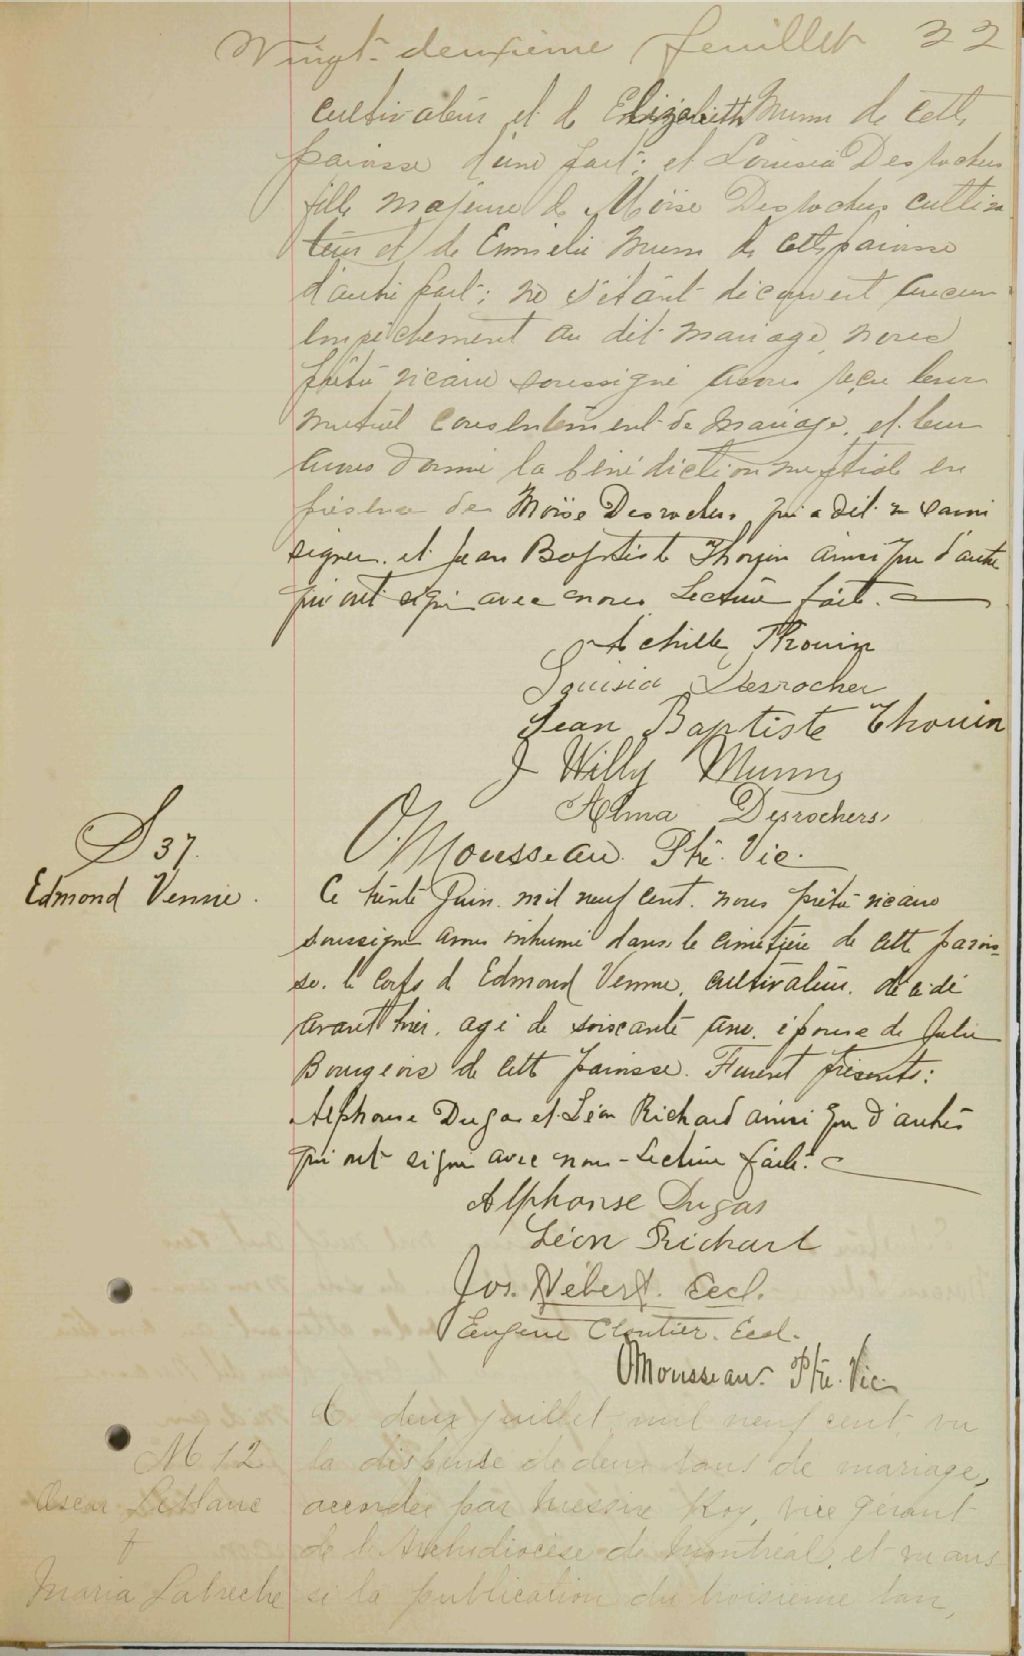 Vingt-deuxième feuillet 22
cultivateur et de Elizabeth Munn de cette
paroisse d'une part; et Louisia Desrochers
fille majeure de Moïse Desrochers cultiva
teur et de Emmélie Munn de cette paroisse
d'autre part; ne s'étant découvert aucun
empêchement au dit mariage, nous
prêtre vicaire soussigné avons reçu leur
mutuel consentement de mariage, et leur
avons donné la bénédiction nuptiale en
présence de Moïse Desrochers qui a dit ne savoir
signer, et Jean Baptiste Thouin ainsi que d'autres
qui ont signé avec nous. Lecture faite.
Achille Thouin
Louisia Desrocher
Jean Baptiste Thouin
J Willy Munn
Alma Desrochers
O. Mousseau Ptre. Vic.
S 37.
Edmond Venne.
Ce trente Juin mil neuf cent, nous prêtre vicaire
soussigné avons inhumé dans le cimetière de cette parois-
se, le corps de Edmond Venne, cultivateur, décédé
avant hier, agé de soixante ans, époux de Julie
Bourgeois de cette paroisse. Furent présents:
Alphonse Dugas et Léon Richard ainsi que d'autres
qui ont signé avec nous - Lecture faite.
Alphonse Dugas
Léon Richard
Jos. Hébert. Eccl.
Eugène Cloutier. Eccl.
O Mousseau. Ptre. Vic.
M 12
Oscar Leblanc
+
Maria Labrèche
Le deux juillet, mil neuf cent, vu
la dispense de deux bans de mariage,
accordée par Messire Roy, vice gérant
de l'Archidiocèse de Montréal, et vu aus
si la publication du troisième ban,